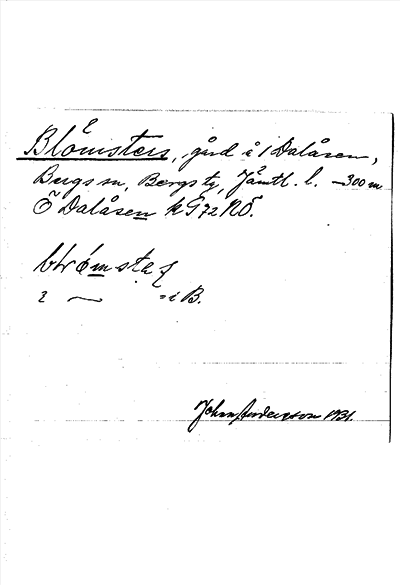 Blåmsters, gård å 1 Dalåsen,
Bergs sn, Bergs tg, Jämtl. l. –300 m
Ö Dalåsen k G72 NÖ.
i B.
John Andersson 1931.